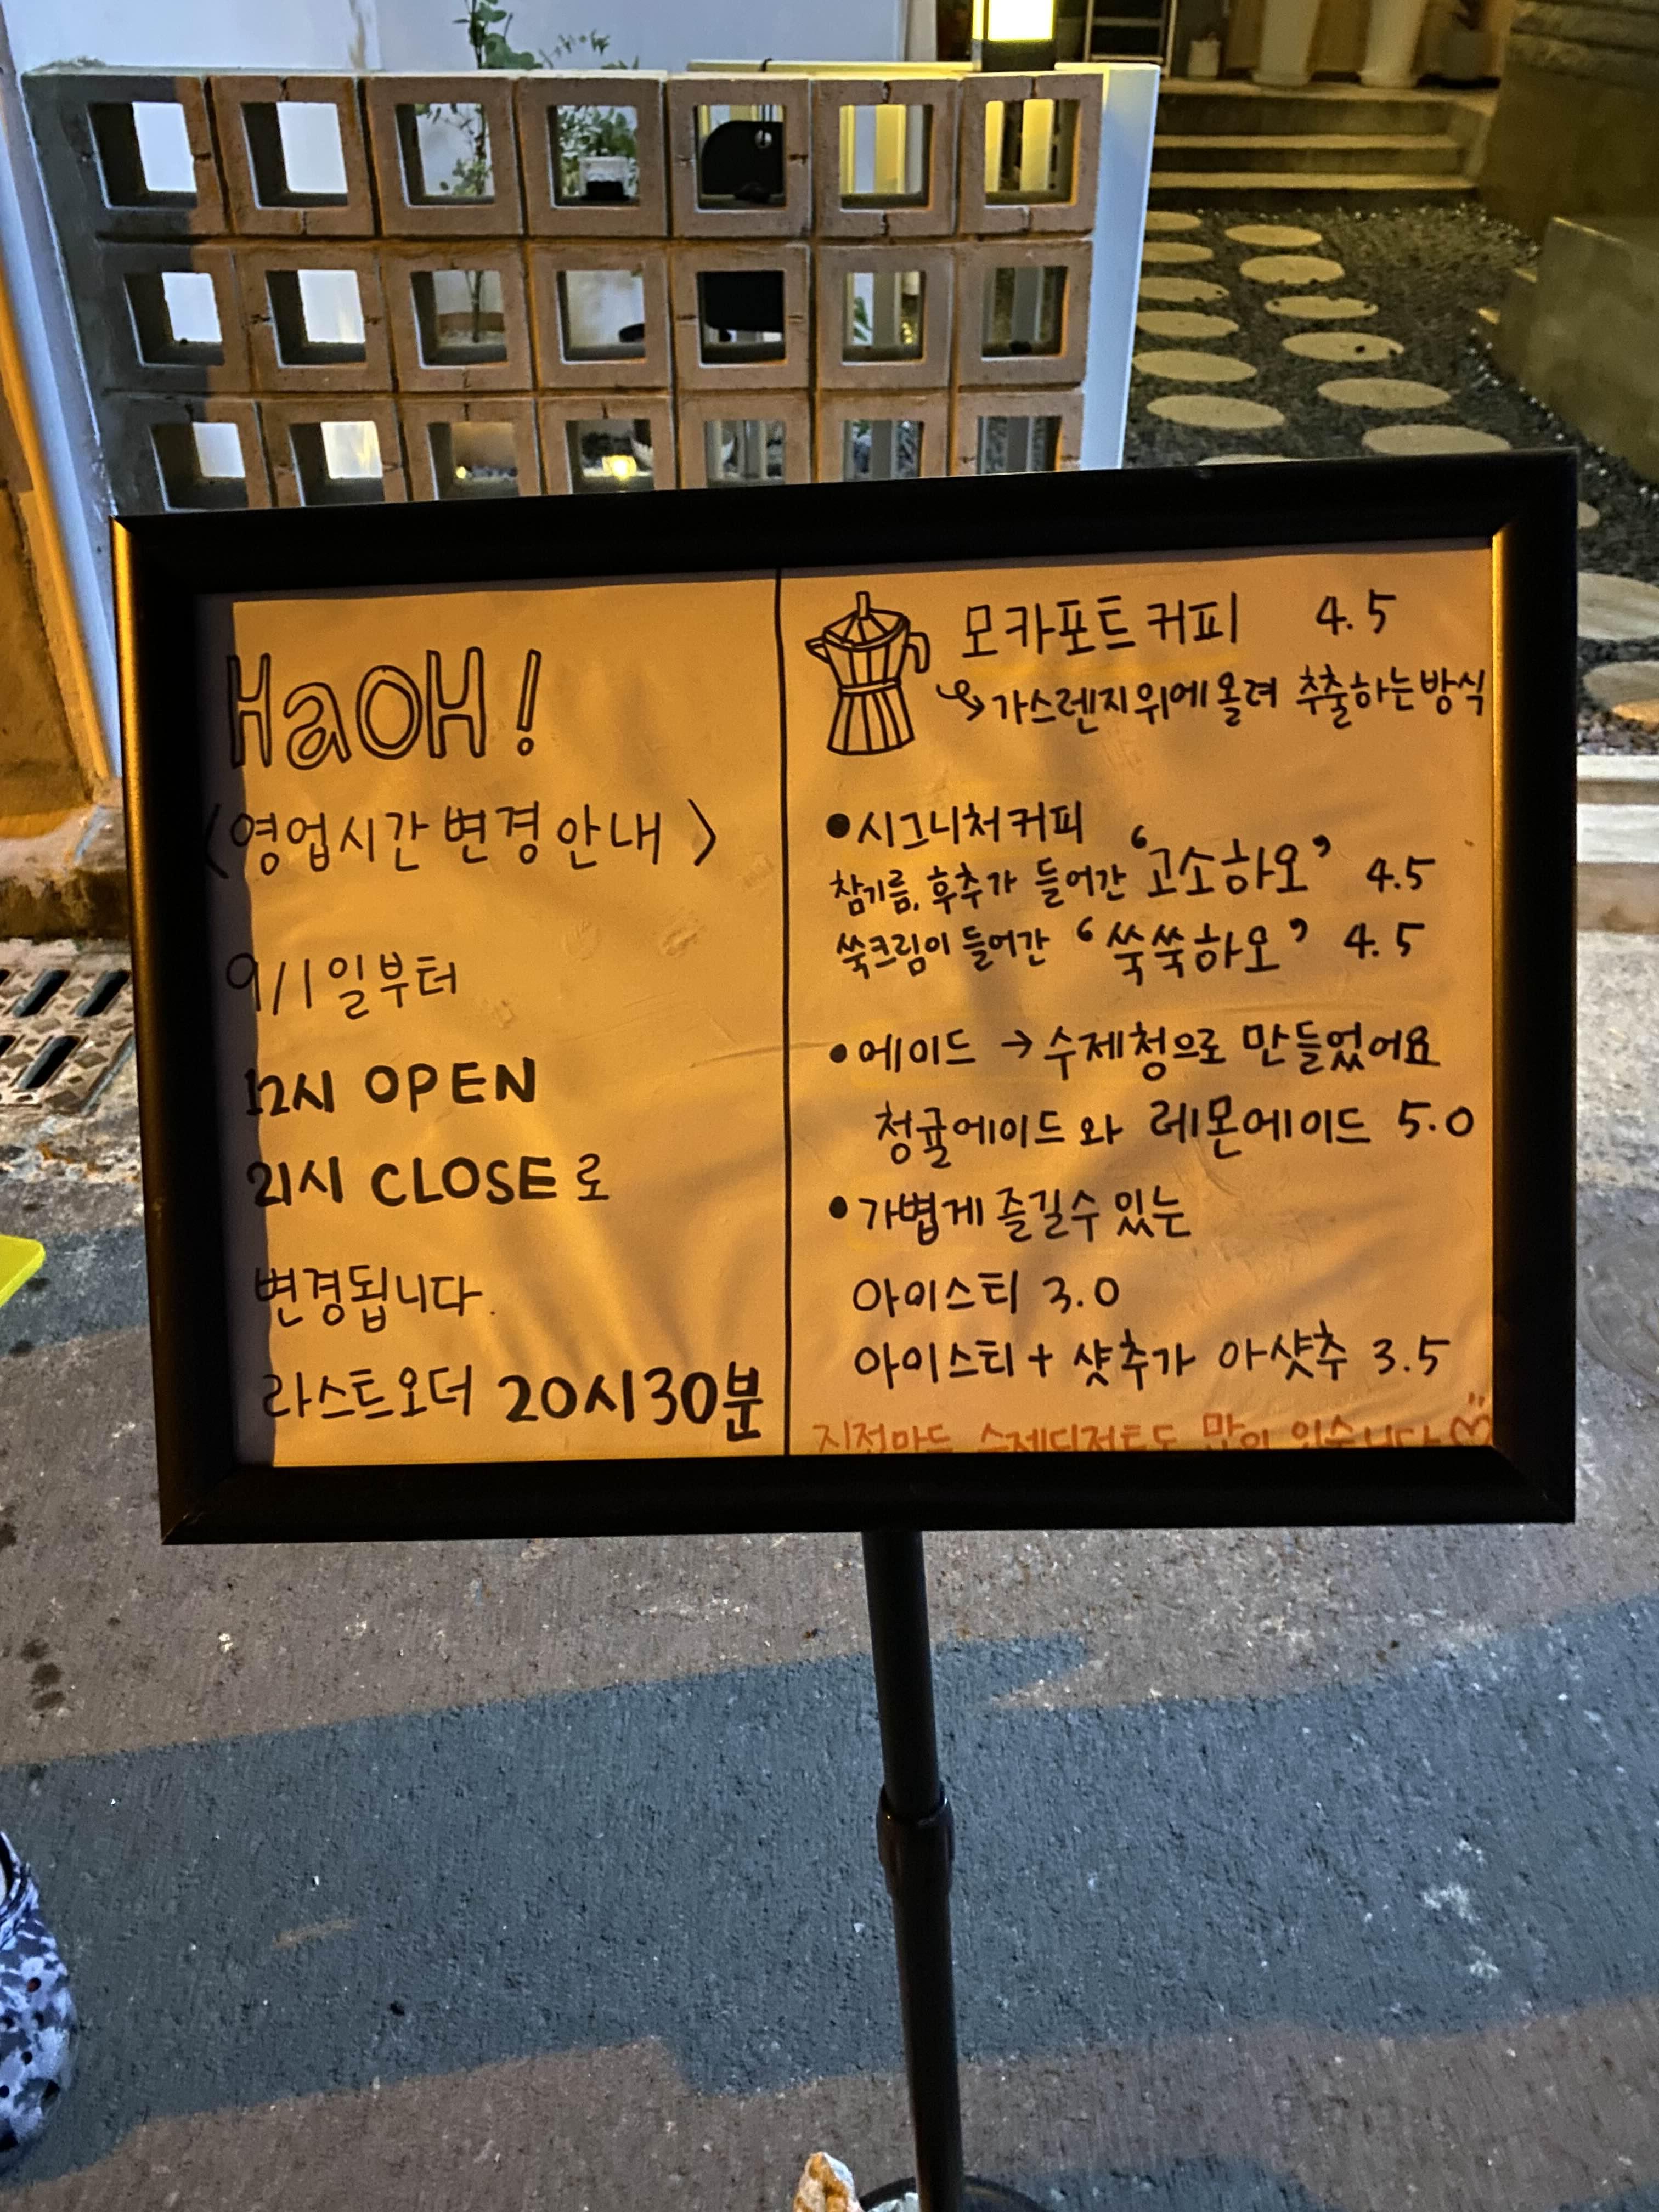 HaOH!
<영업시간 변경 안내>
9/1일부터
12시 OPEN
21시 CLOSE로
변경됩니다.
라스트오더 20시30분
모카포트 커피 4.5
가스렌지 위에 올려 추출하는 방식
•시그니처 커피
참기름, 후추가 들어간 '고소하오' 4.5
쑥크림이 들어간 '쑥쑥하오' 4.5
•에이드 → 수제청으로 만들었어요
청귤에이드와 레몬에이드 5.0
•가볍게 즐길수 있는
아이스티 3.0
아이스티+ 샷추가 아샷추 3.5
수제디저트도 맛이 있습니다